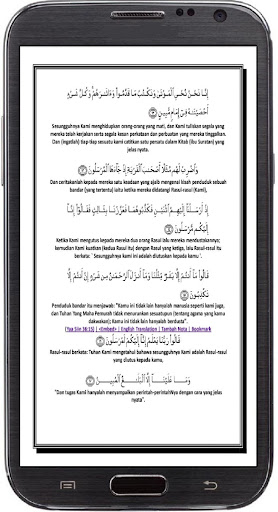 إِنَّا نَحْنُ نُحْيِ الْمَوْتَىٰ وَنَكْتُبُ مَا قَدَّمُوا وَآثَارَهُمْ وَكُلَّ شَيْءٍ
أَحْصَيْنَاهُ فِي إِمَامٍ مُّبِينٍ
Sesungguhnya Kami menghidupkan orang-orang yang mati, dan Kami tuliskan segala yang
mereka telah kerjakan serta segala kesan perkataan dan perbuatan yang mereka tinggalkan.
Dan (ingatlah) tiap-tiap sesuatu kami catitkan satu persatu dalam Kitab (Ibu Suratan) yang
jelas nyata.
وَاضْرِبْ لَهُم مَّثَلًا أَصْحَابَ الْقَرْيَةِ إِذْ جَاءَهَا الْمُرْسَلُونَ
Dan ceritakanlah kepada mereka satu keadaan yang ajaib mengenai kisah penduduk sebuah
bandar (yang tertentu) iaitu ketika mereka didatangi Rasul-rasul (Kami),
إِذْ أَرْسَلْنَا إِلَيْهِمُ اثْنَيْنِ فَكَذَّبُوهُمَا فَعَزَّزْنَا بِثَالِثٍ فَقَالُوا إِنَّا
إِلَيْكُم مُّرْسَلُونَ
Ketika Kami mengutus kepada mereka dua orang Rasul lalu mereka mendustakannya;
kemudian Kami kuatkan (kedua Rasul itu) dengan Rasul yang ketiga, lalu Rasul-rasul itu
berkata: `Sesungguhnya kami ini adalah diutuskan kepada kamu `.
قَالُوا مَا أَنتُمْ إِلَّا بَشَرٌ مِّثْلُنَا وَمَا أَنزَلَ الرَّحْمَٰنُ مِن شَيْءٍ إِنْ أَنتُمْ إِلَّا
تَكْذِبُونَ
Penduduk bandar itu menjawab: "Kamu ini tidak lain hanyalah manusia seperti kami juga,
dan Tuhan Yang Maha Pemurah tidak menurunkan sesuatupun (tentang agama yang kamu
dakwakan); Kamu ini tidak lain hanyalah berdusta".
(Yaa Siin 36:15) | <Embed> | English Translation | Tambah Nota | Bookmark
قَالُوا رَبُّنَا يَعْلَمُ إِنَّا إِلَيْكُمْ لَمُرْسَلُونَ
Rasul-rasul berkata: Tuhan Kami mengetahui bahawa sesungguhnya Kami adalah Rasul-rasul
yang diutus kepada kamu,
وَمَا عَلَيْنَا إِلَّا الْبَلَاغُ الْمُبِينُ
"Dan tugas Kami hanyalah menyampaikan perintah-perintahNya dengan cara yang jelas
nyata".